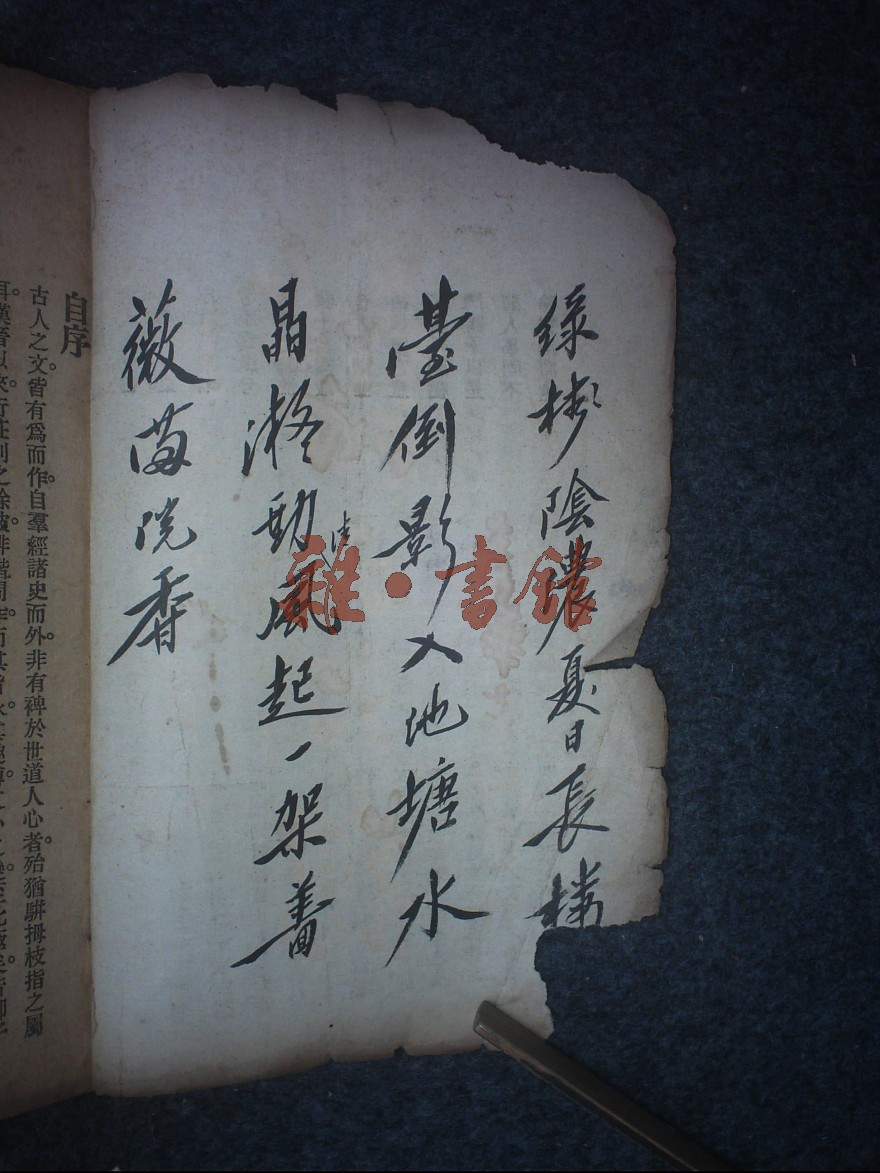 綠樹陰濃夏日長樓
臺倒影入池塘水
晶動風起一架薔
薇滿院香
雜·書館
自序
古人之文。皆有爲而作。自羣經諸史而外。非有裨於世道人心者。殆猶駢拇枝指之屬